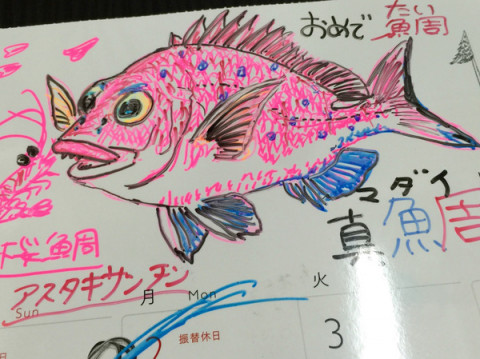 おめで鯛
たい
マダイ
真鯛
桜鯛
アスタキサンチン
Sun
月 Mon
火
振替休日
3